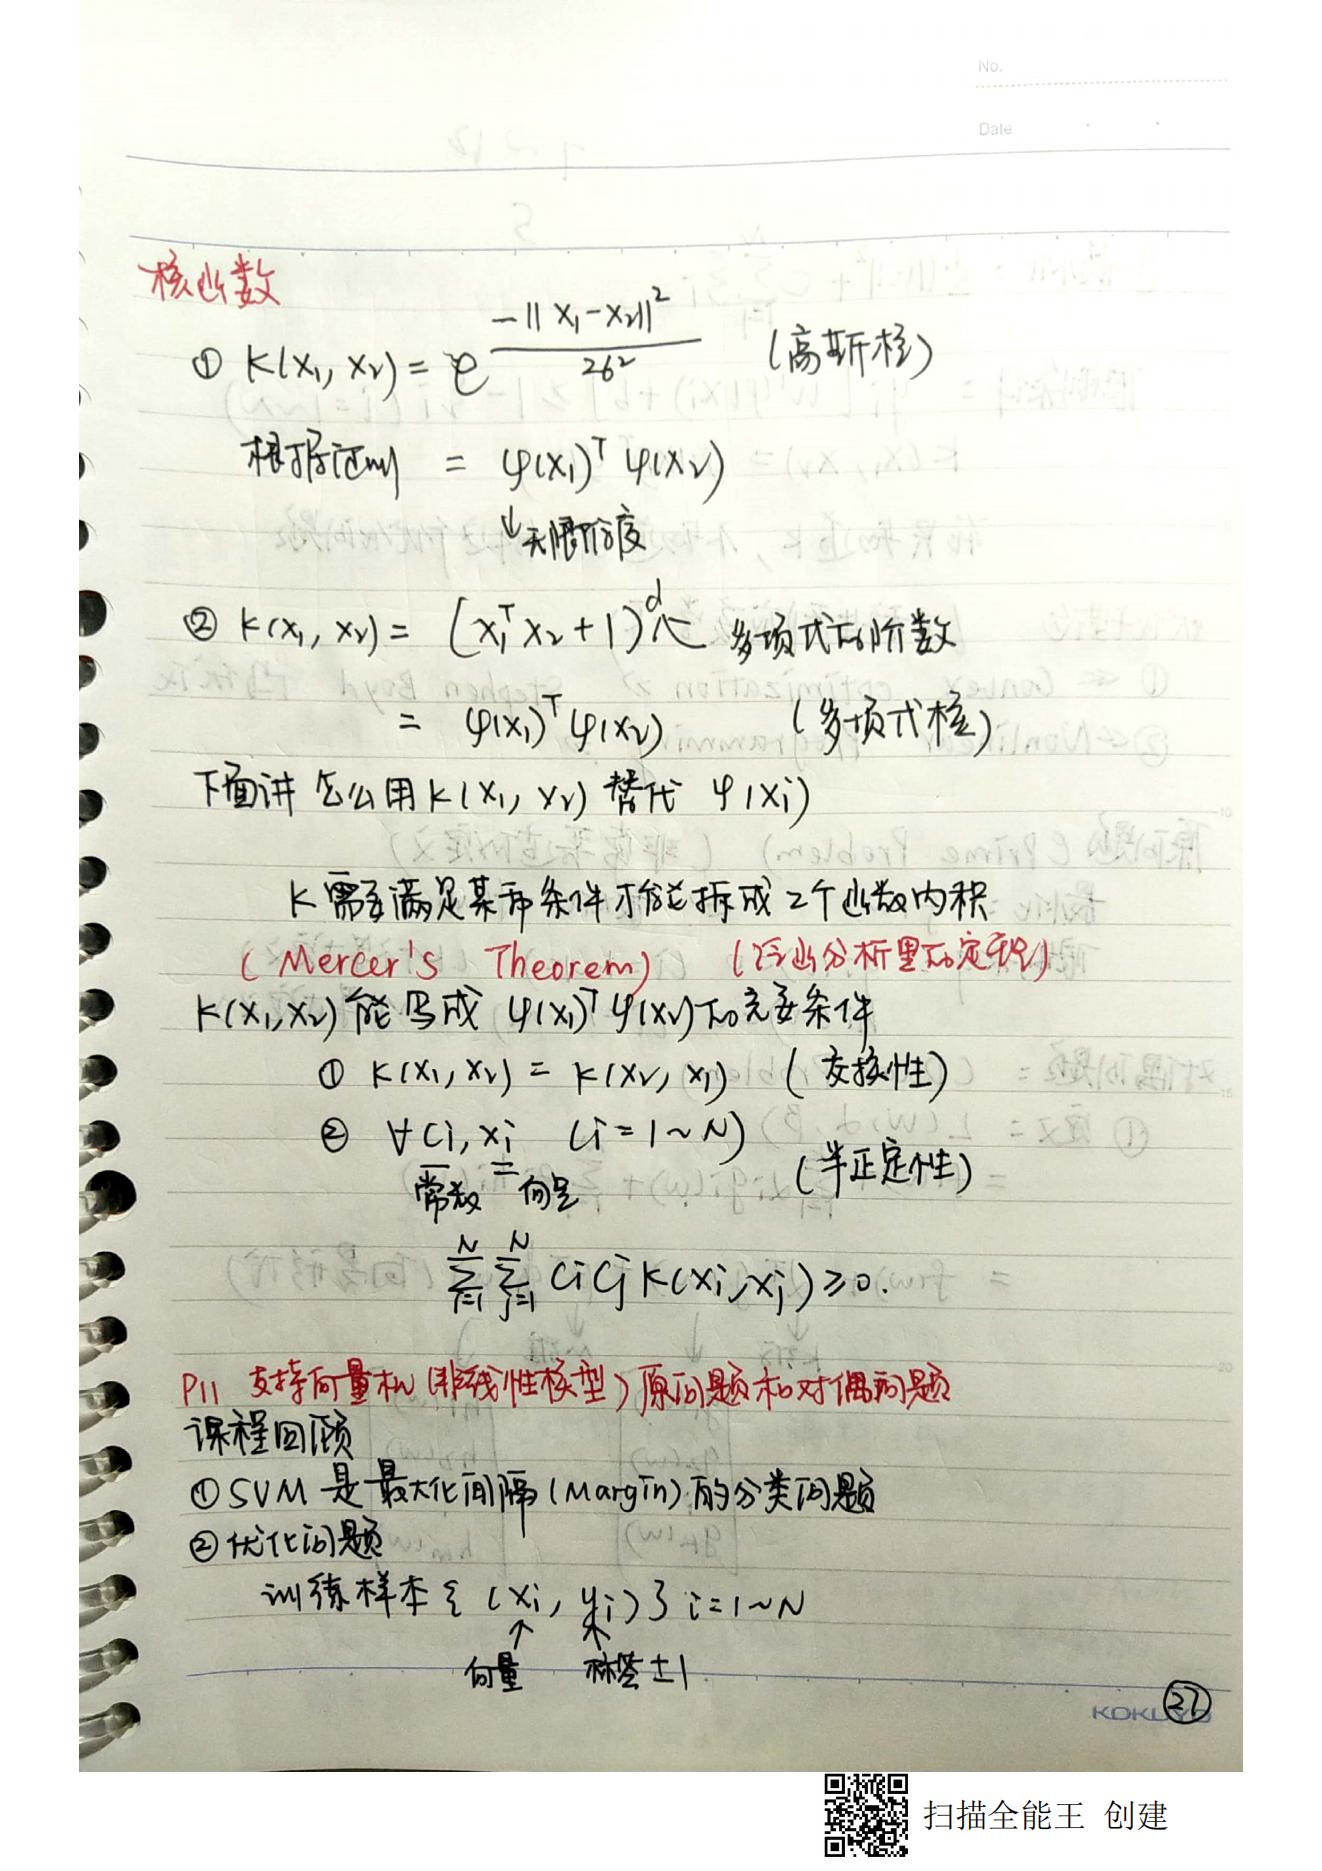 No.
Date
核函数
① K(x₁, x₂) = e^(-||x₁-x₂||²/2σ²) (高斯核)
根据证明 = φ(x₁)ᵀ φ(x₂)
↓无限阶度
② K(x₁, x₂) = (x₁ᵀx₂+1)^d ← 多项式的阶数
= φ(x₁)ᵀφ(x₂) (多项式核)
下面讲怎么用K(x₁, x₂)替代 φ(xi)
K需要满足某种条件才能拆成2个函数内积
(Mercer's Theorem) (泛函分析里的定理)
K(x₁,x₂)能写成 φ(x₁)ᵀφ(x₂)的充要条件
① K(x₁, x₂) = K(x₂, x₁) (交换性)
② ∀Ci, xi (i=1~N)
常数 向量 (半正定性)
∑_{i=1}^{N} ∑_{j=1}^{N} CiCjK(xi,xj)≥0.
P11 支持向量机(非线性模型)原问题和对偶问题
课程回顾
①SVM是最大化间隔(Margin)的分类问题
②优化问题
训练样本{(xi, yi)}i=1~N
↑ ↑
向量 标签±1
KOKUYO
27
扫描全能王 创建